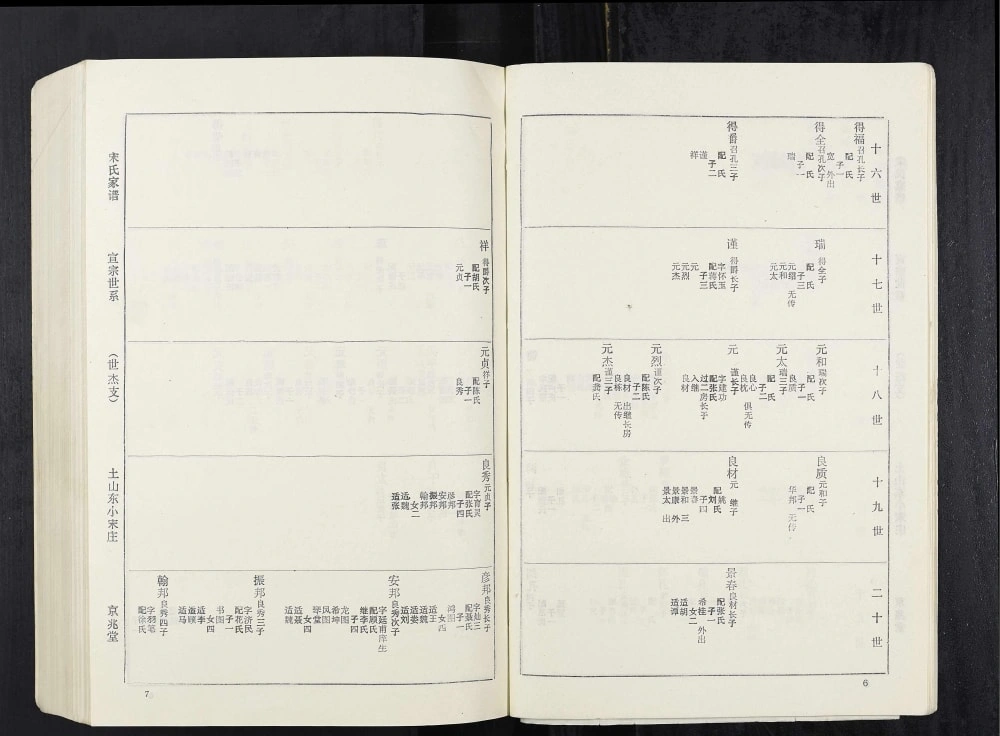 十六世
得福 召孔长子
配 氏
子一
宽 外出
得全 召孔次子
配 氏
子一
瑞
得爵 召孔三子
配 氏
子二
谨
祥
十七世
瑞 得全子
配 氏
子三
元继 无传
元和
元太
谨 得爵长子
字怀玉
配蒋氏
子三
元
元烈
元杰
十八世
元和 瑞次子
配 氏
子一
良质
元太 瑞三子
配 氏
子二
良心
良忱 俱无传
元 谨长子
字建功
配张氏
过二房长子
入继
良材
元烈 谨次子
配陈氏
子二
良材 出继长房
良栋 无传
元杰 谨三子
配龚氏
十九世
良质 元和子
配 氏
子一
华邦 无传
良材 元 继子
配姚氏
刘氏
子四
景春
景和 三
景康 外
景太 出
二十世
景春 良材长子
配张氏
子一
希桂 外出
女二
适胡
适谭
6
宋氏家谱
宣宗世系
(世杰支)
土山东小宋庄
京兆堂
祥 得爵次子
配胡氏
子一
元贞
元贞 祥子
配陈氏
子一
良秀
良秀 元贞子
字育灵
配张氏
子四
彦邦
安邦
振邦
翰邦
女二
适魏
适张
彦邦 良秀长子
字灿三
配聂氏
子一
鸿图
女四
适王
适魏
适娄
适刘
安邦 良秀次子
字廷甫庠生
配顾氏
继李氏
子四
龙图
希坤
凤图
琴堂
女四
适聂
适魏
振邦 良秀三子
字济民
配花氏
子一
书图
女四
适李
适顾
适马
翰邦 良秀四子
字羽笔
配徐氏
7